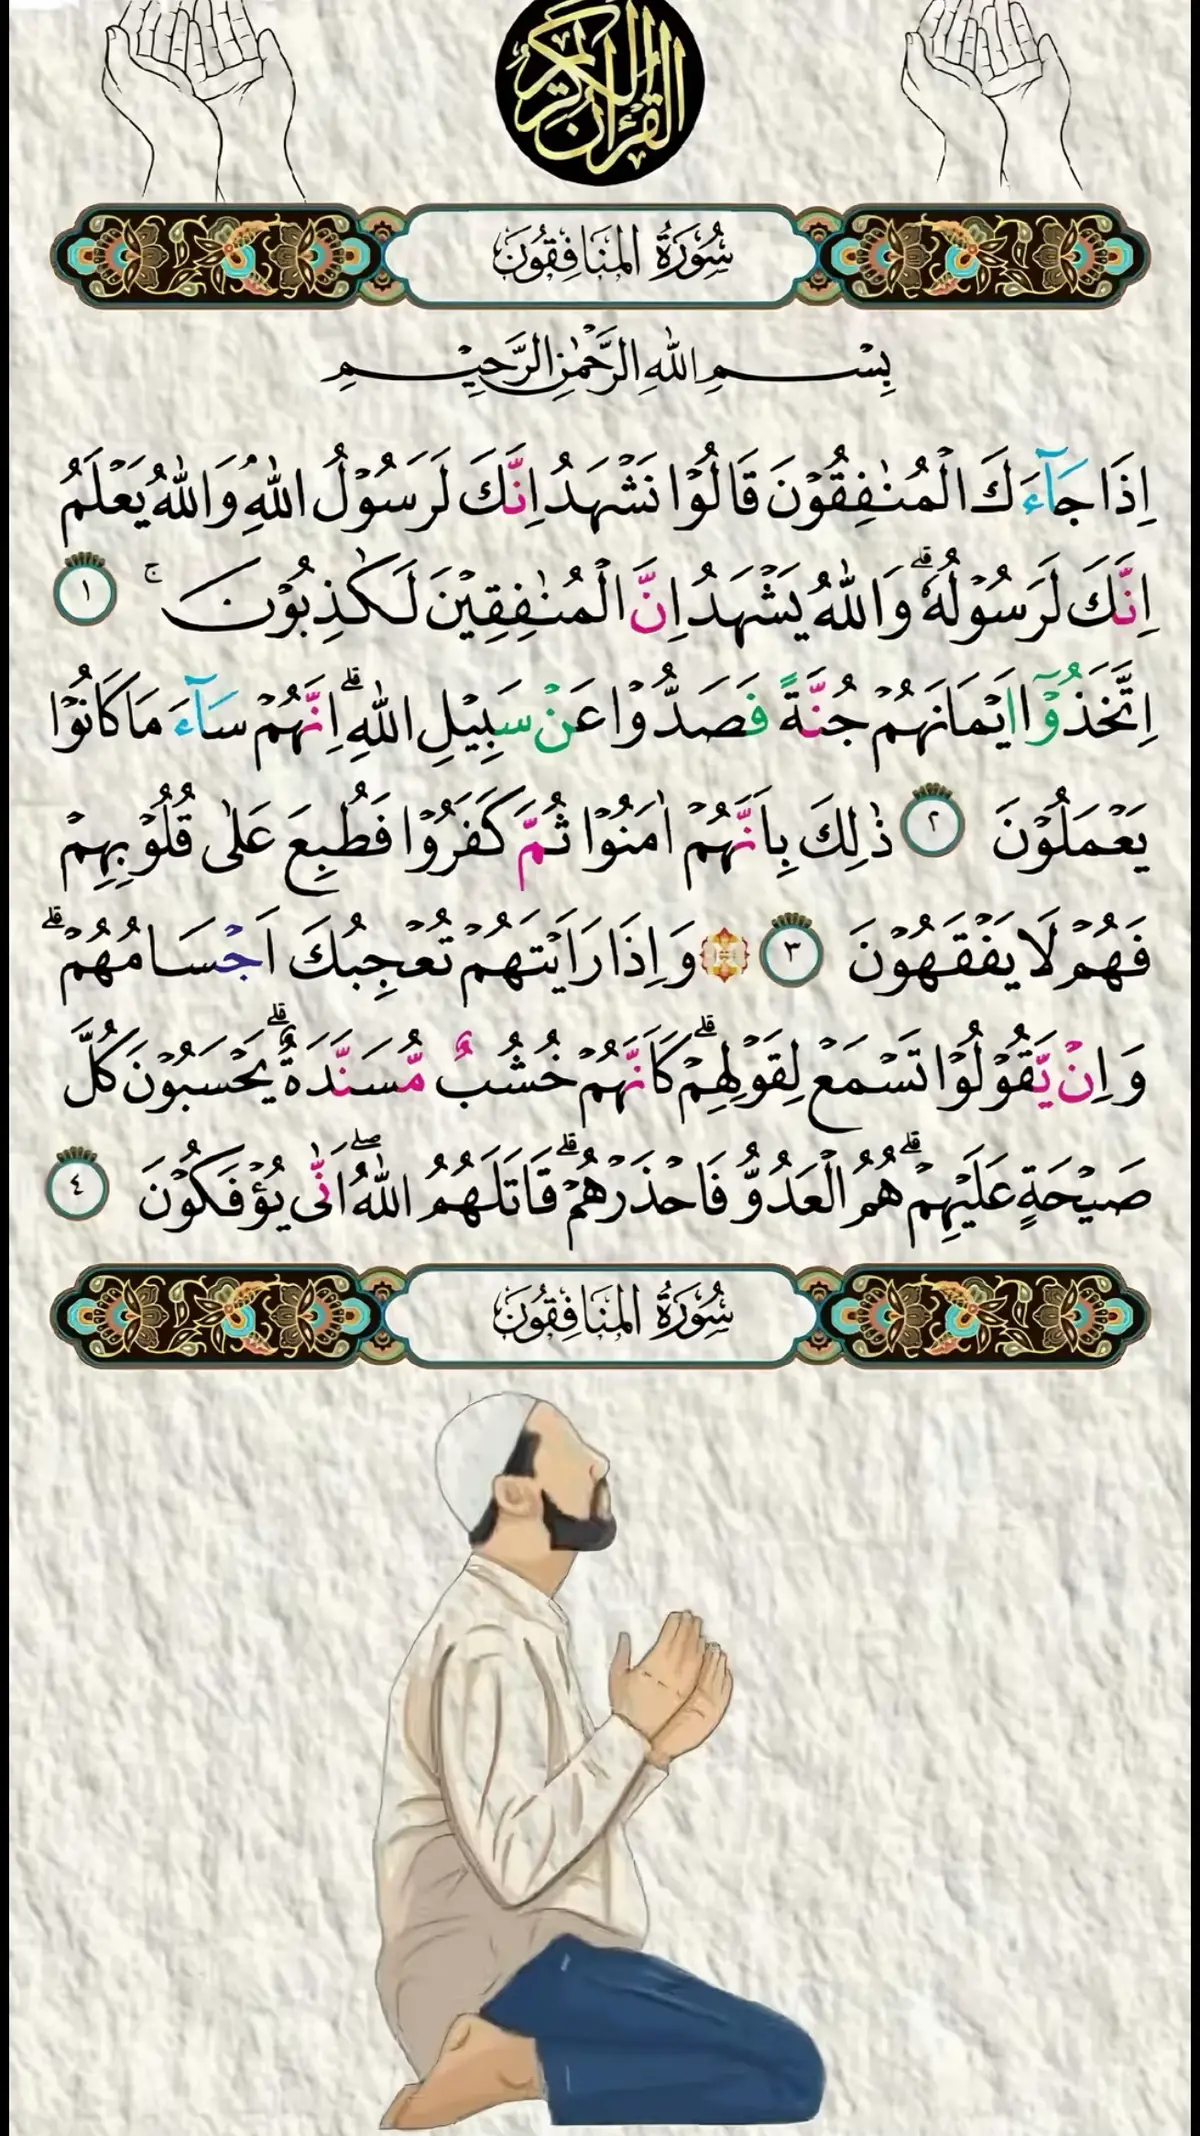 القرآن الكريم
سُورَةُ المُنَافِقُونَ
بِسْمِ اللّٰهِ الرَّحْمٰنِ الرَّحِيْمِ
اِذَا جَآءَكَ الْمُنٰفِقُوْنَ قَالُوْا نَشْهَدُ اِنَّكَ لَرَسُوْلُ اللّٰهِ ۘ وَاللّٰهُ يَعْلَمُ
اِنَّكَ لَرَسُوْلُهٗ ۗ وَاللّٰهُ يَشْهَدُ اِنَّ الْمُنٰفِقِيْنَ لَكٰذِبُوْنَ ۚ ١
اِتَّخَذُوْٓا اَيْمَانَهُمْ جُنَّةً فَصَدُّوْا عَنْ سَبِيْلِ اللّٰهِ ۗ اِنَّهُمْ سَآءَ مَا كَانُوْا
يَعْمَلُوْنَ ٢ ذٰلِكَ بِاَنَّهُمْ اٰمَنُوْا ثُمَّ كَفَرُوْا فَطُبِعَ عَلٰى قُلُوْبِهِمْ
فَهُمْ لَا يَفْقَهُوْنَ ٣ ۞ وَاِذَا رَاَيْتَهُمْ تُعْجِبُكَ اَجْسَامُهُمْ ۗ
وَاِنْ يَّقُوْلُوْا تَسْمَعْ لِقَوْلِهِمْ ۗ كَاَنَّهُمْ خُشُبٌ مُّسَنَّدَةٌ ۗ يَحْسَبُوْنَ كُلَّ
صَيْحَةٍ عَلَيْهِمْ ۗ هُمُ الْعَدُوُّ فَاحْذَرْهُمْ ۗ قَاتَلَهُمُ اللّٰهُ ۖ اَنّٰى يُؤْفَكُوْنَ ٤
سُورَةُ المُنَافِقُونَ